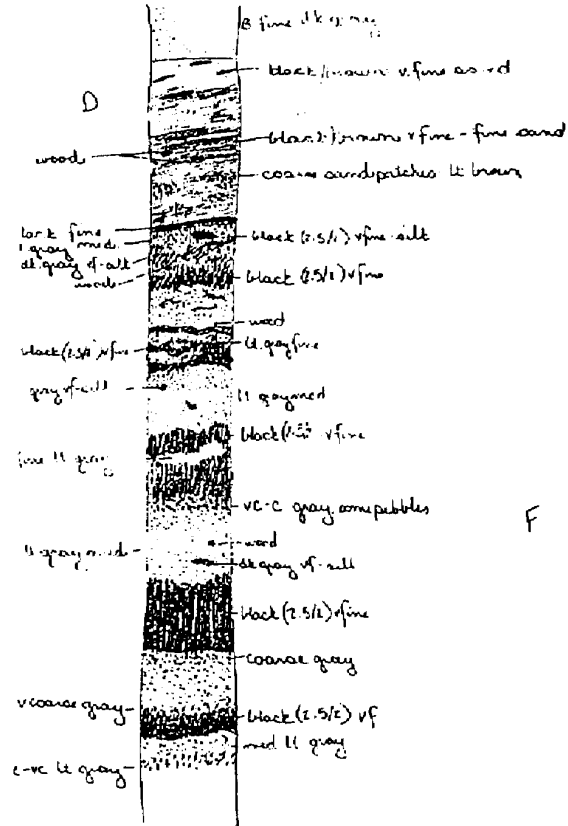 B fine dk gray
black/brown v. fine sand
D
black/brown v fine - fine sand
wood
coarse sand patches lt brown
fine
black (2.5/1) v fine-silt
l. gray med.
dk. gray vf-silt
black (2.5/1) v fine
wood
wood
lt. gray fine
black (2.5/1) v fine
gray vf-silt
lt gray med
black v fine
fine lt gray
vc-c gray, some pebbles
F
wood
lt gray med
dk gray vf-silt
black (2.5/1) v fine
coarse gray
v coarse gray
black (2.5/1) vf
med lt gray
c-vc lt gray